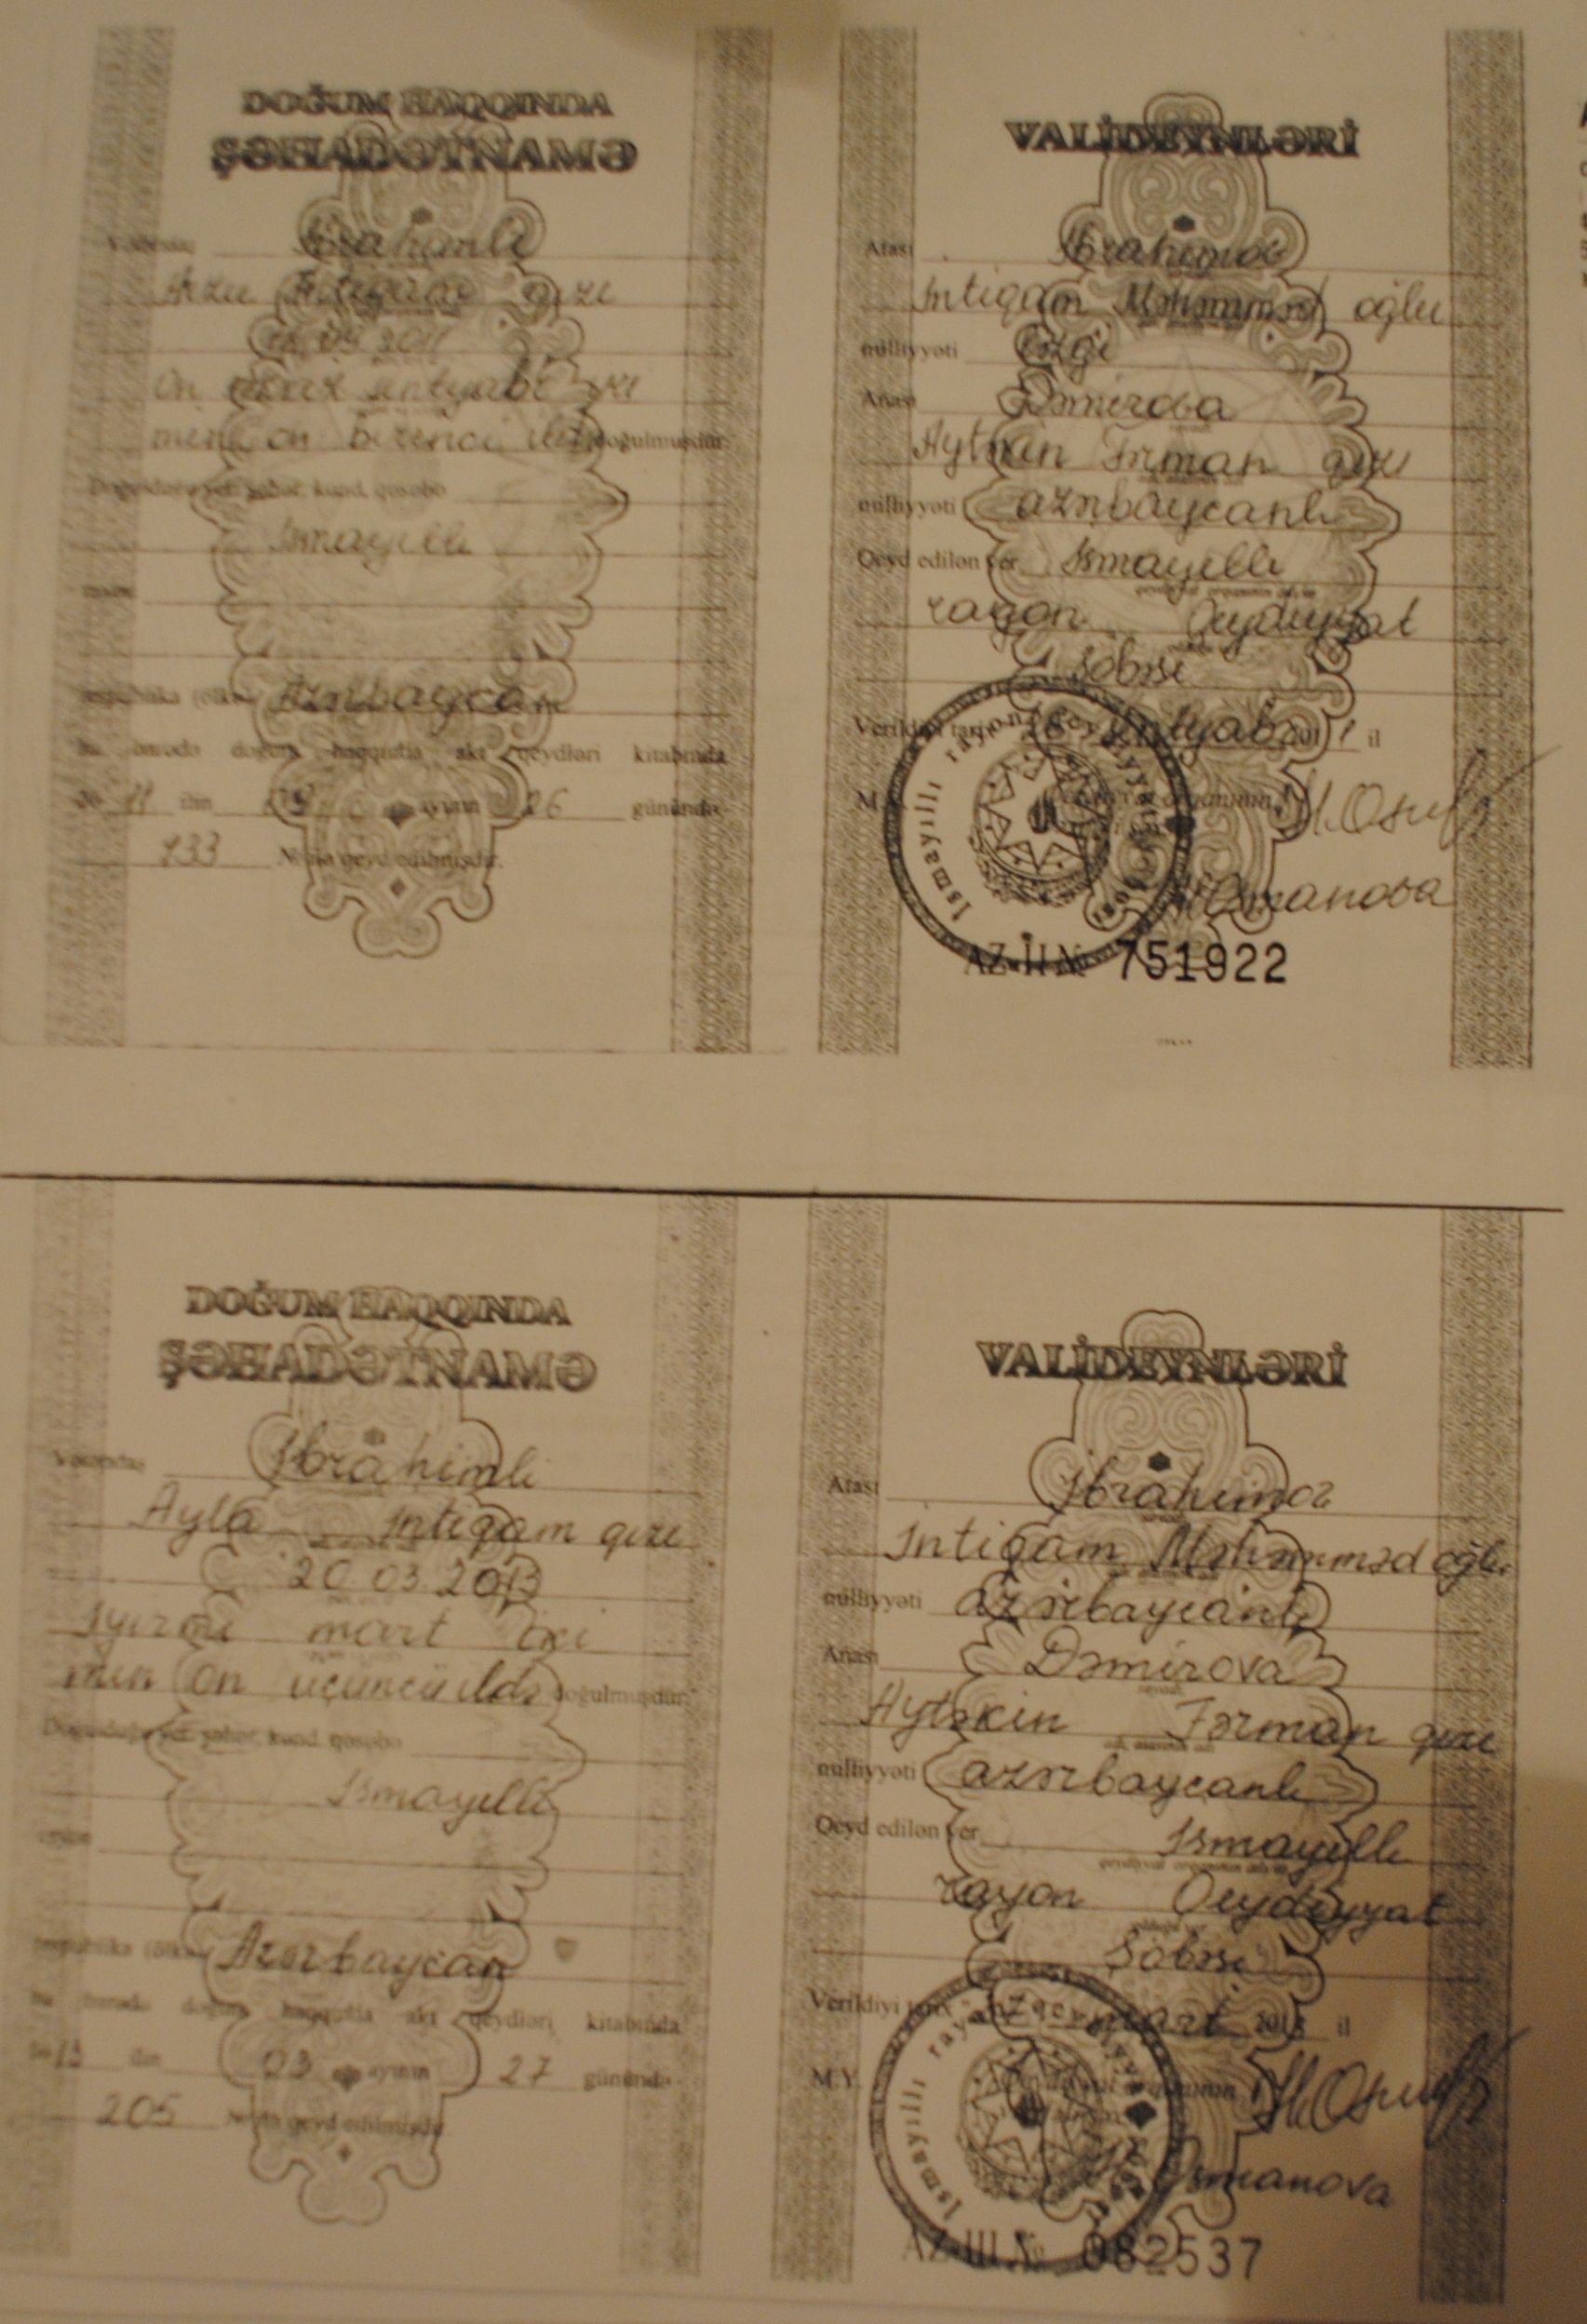 DOĞUM HAQQINDA
ŞƏHADƏTNAMƏ
İbrahimli
Arzu İntiqam qızı
on sentyabr iki
min on birinci ildə doğulmuşdur.
Doğulduğu yer: şəhər, kənd, qəsəbə
İsmayıllı
rayon
respublika (ölkə) Azərbaycan
Bu barədə doğum haqqında akt qeydləri kitabında
11 ilin 09 ayının 26 günündə
№-da qeyd edilmişdir.
VALİDEYNLƏRİ
Atası İbrahimov
İntiqam Məhəmməd oğlu
milliyyəti ləzgi
Anası Dəmirova
Aytəkin Fərman qızı
milliyyəti azərbaycanlı
Qeyd edilən yer İsmayıllı
rayon Qeydiyyat
şöbəsi
Verildiyi tarix sentyabr 2011 il
M.Y.
İsmayıllı rayon
Osmanova
AZ-II № 751922
DOĞUM HAQQINDA
ŞƏHADƏTNAMƏ
Vətəndaş İbrahimli
Ayla İntiqam qızı
20 03 2013
İyirmi mart iki
min on üçüncü ildə doğulmuşdur.
Doğulduğu yer: şəhər, kənd, qəsəbə
İsmayıllı
rayon
respublika (ölkə) Azərbaycan
Bu barədə doğum haqqında akt qeydləri kitabında
13 ilin 03 ayının 27 günündə
205 №-da qeyd edilmişdir
VALİDEYNLƏRİ
Atası İbrahimov
İntiqam Məhəmməd oğlu
milliyyəti azərbaycanlı
Anası Dəmirova
Aytəkin Fərman qızı
milliyyəti azərbaycanlı
Qeyd edilən yer İsmayıllı
rayon Qeydiyyat
şöbəsi
Verildiyi tarix mart 2013 il
M.Y.
İsmayıllı rayon
Osmanova
AZ-III № 082537